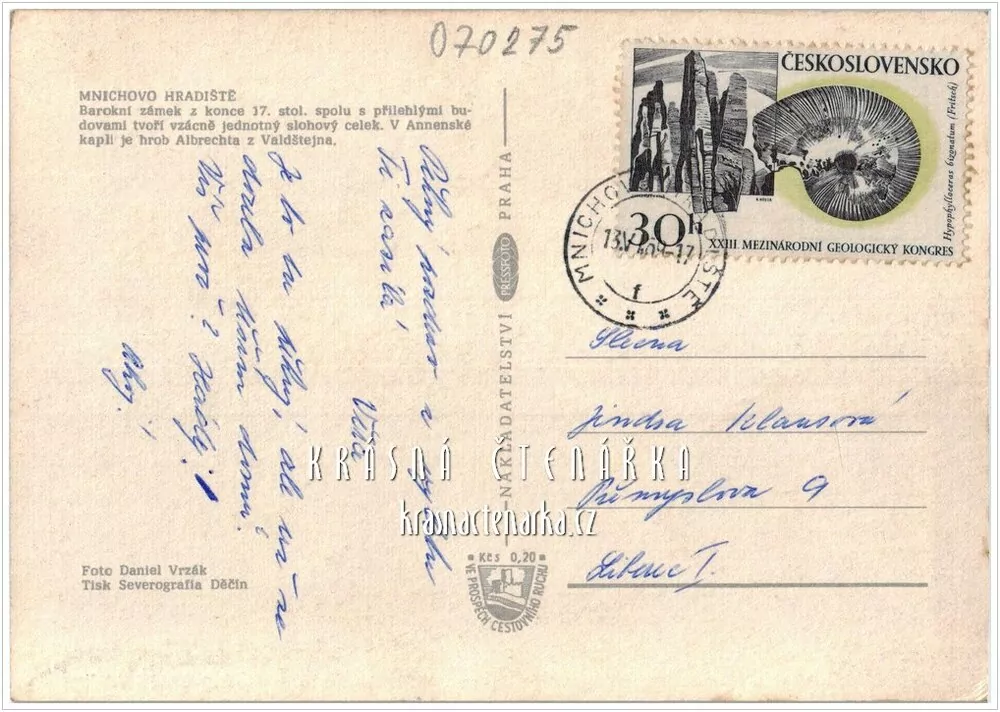 070275
MNICHOVO HRADIŠTĚ
Barokní zámek z konce 17. stol. spolu s přilehlými bu-
dovami tvoří vzácně jednotný slohový celek. V Annenské
kapli je hrob Albrechta z Valdštejna.
ČESKOSLOVENSKO
Hypophylloceras bizonatum (Fritsch)
30h
XXIII. MEZINÁRODNÍ GEOLOGICKÝ KONGRES
MNICHOVO HRADIŠTĚ
13.V
f
NAKLADATELSTVÍ PRESSFOTO PRAHA
Pěkný pozdrav z výletu
Ti zasílá
Věra
Je to tu
ale
domů.
Ahoj!
Slečna
Jindra Klausová
Průmyslova 9
Liberec I.
KRÁSNÁ ČTENÁŘKA
krasnactenarka.cz
Kčs 0,20
VE PROSPĚCH CESTOVNÍHO RUCHU
Foto Daniel Vrzák
Tisk Severografia Děčín